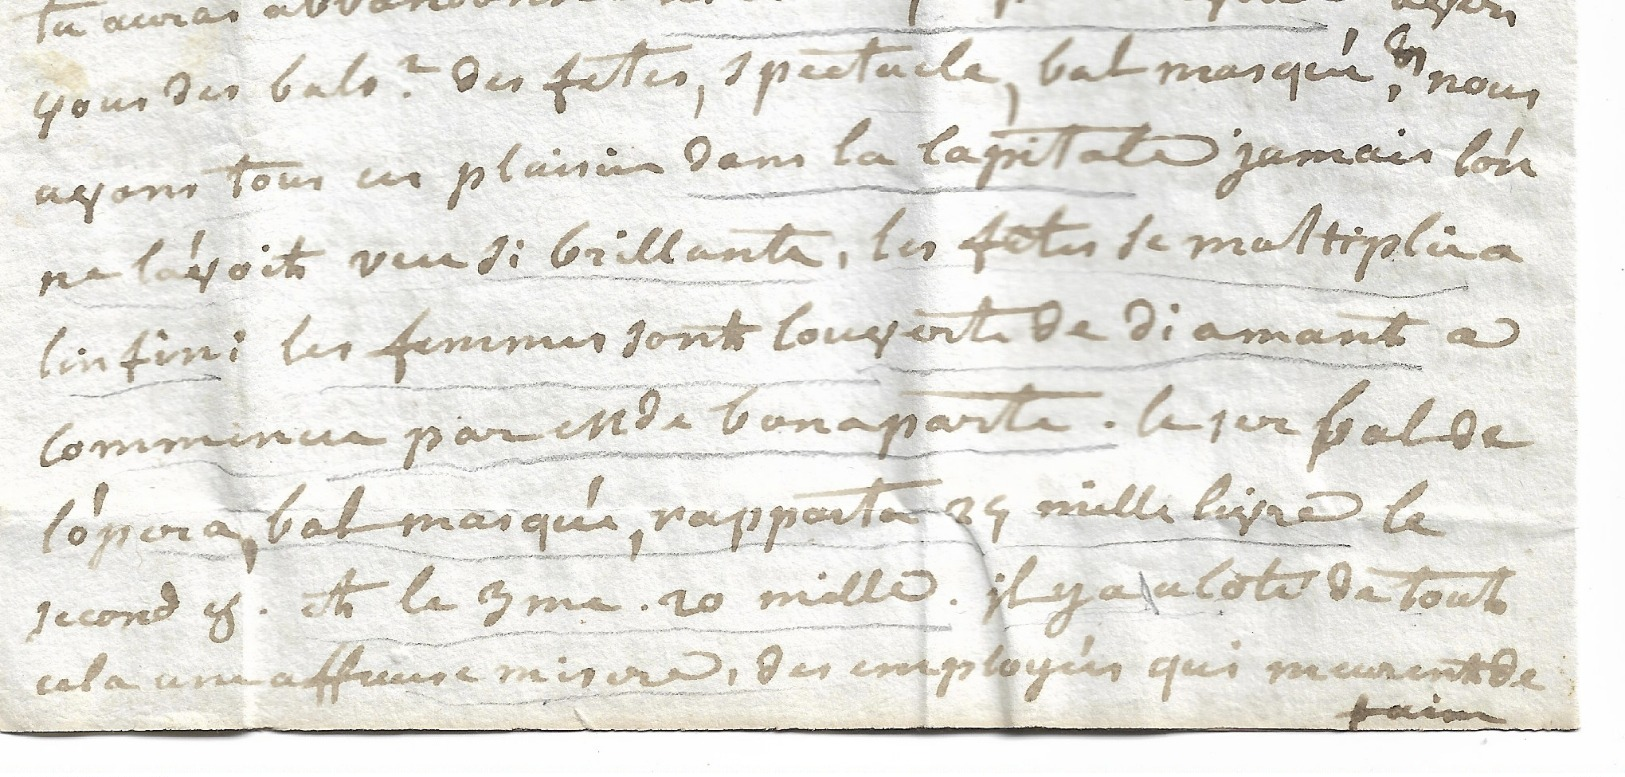 tu auras abbandonné
vous des bals? des fetes, spectacle, bal masqué, &, nous
avons tous ces plaisir dans la capitale jamais lón
ne lávoit veu si brillante, les fetes se multiplie a
linfini les femmes sont couverte de diamant a
commencer par Mde bonaparte. le 1er bal de
lópera, bal masqué, rapporta 25 mille livre le
second 18. et le 3me. 20 mille. il y a a coté de tout
cela une affreuse misere, des employés qui meurent de
faim